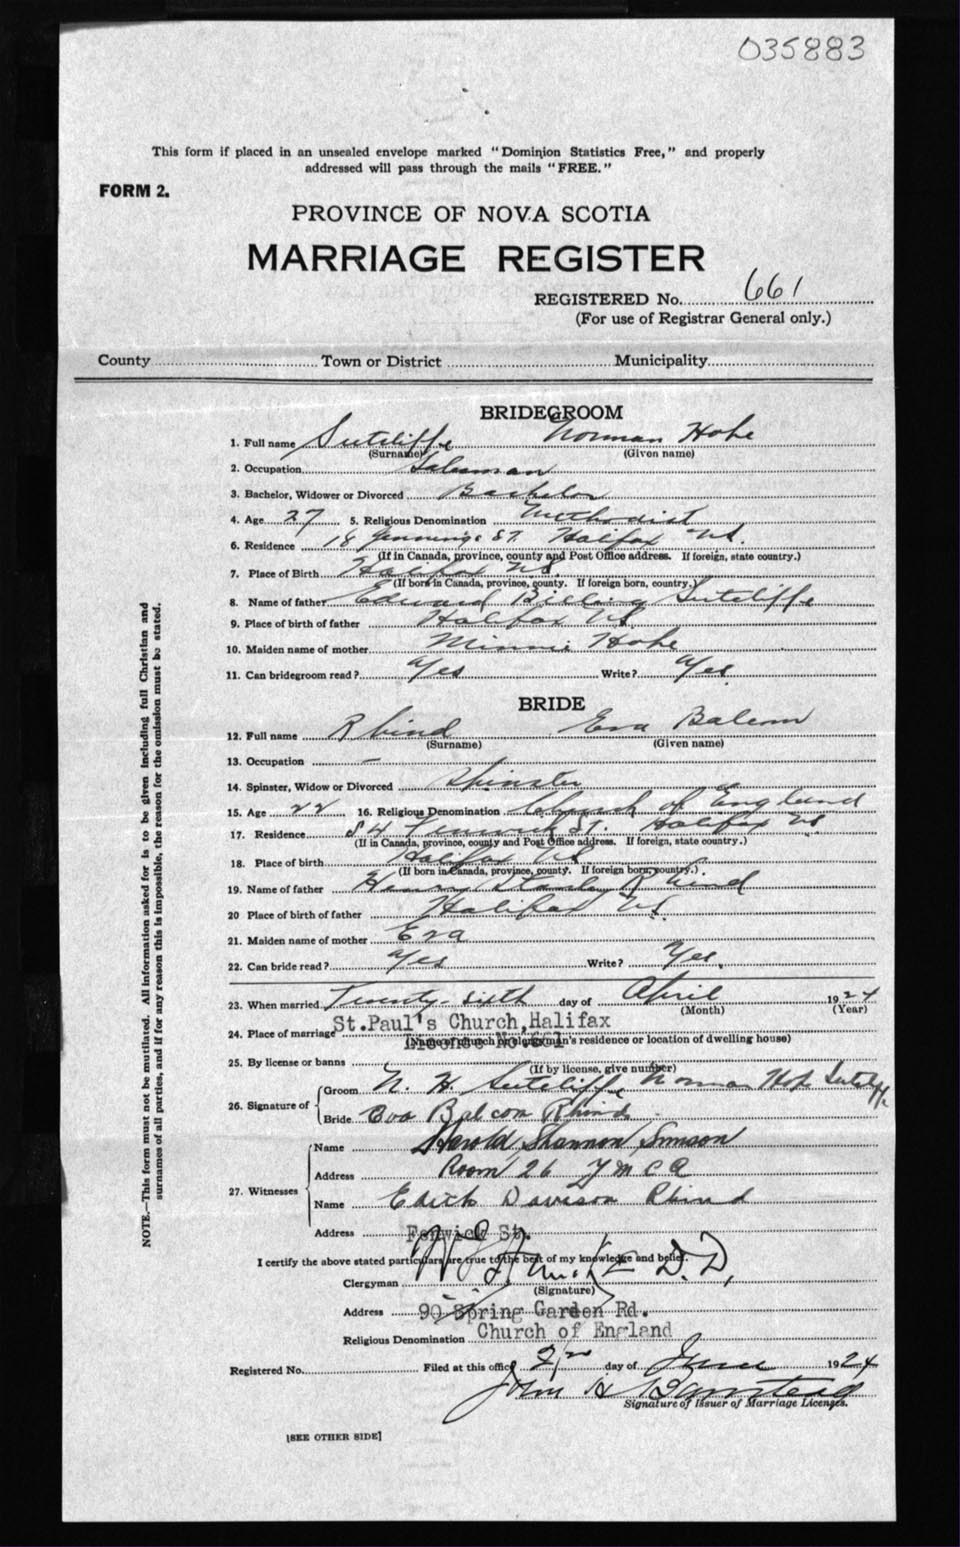 035883
This form if placed in an unsealed envelope marked "Dominion Statistics Free," and properly
addressed will pass through the mails "FREE."
FORM 2.
PROVINCE OF NOVA SCOTIA
MARRIAGE REGISTER
REGISTERED No. 661
(For use of Registrar General only.)
County Town or District Municipality
BRIDEGROOM
1. Full name Sutcliffe Norman Hope
(Surname) (Given name)
2. Occupation Salesman
3. Bachelor, Widower or Divorced Bachelor
4. Age 27 5. Religious Denomination Methodist
6. Residence 18 Jennings St. Halifax NS.
(If in Canada, province, county and Post Office address. If foreign, state country.)
7. Place of Birth Halifax NS.
(If born in Canada, province, county. If foreign born, country.)
8. Name of father Edward Billing Sutcliffe
9. Place of birth of father Halifax NS.
10. Maiden name of mother Minnie Hope
11. Can bridegroom read? Yes Write? Yes
BRIDE
12. Full name Rhind Eva Balcom
(Surname) (Given name)
13. Occupation –
14. Spinster, Widow or Divorced Spinster
15. Age 22 16. Religious Denomination Church of England
17. Residence 84 Fenwick St. Halifax NS
(If in Canada, province, county and Post Office address. If foreign, state country.)
18. Place of birth Halifax NS
(If born in Canada, province, county. If foreign born, country.)
19. Name of father Henry Stanley Rhind
20 Place of birth of father Halifax NS.
21. Maiden name of mother Eva
22. Can bride read? Yes Write? Yes.
23. When married Twenty-sixth day of April 1924
(Month) (Year)
24. Place of marriage St.Paul's Church,Halifax
(Name of church or clergyman's residence or location of dwelling house)
25. By license or banns
(If by license, give number)
26. Signature of Groom N. H. Sutcliffe Norman Hope Sutcliffe
Bride Eva Balcom Rhind
27. Witnesses Name Harold Shannon Simson
Address Room 26 Y M C A
Name Edith Davison Rhind
Address Fenwick St.
I certify the above stated particulars are true to the best of my knowledge and belief.
Clergyman D.D,
(Signature)
Address 90 Spring Garden Rd.
Religious Denomination Church of England
Registered No. Filed at this office 2 day of June 1924
John H Barnstead
Signature of Issuer of Marriage Licenses.
[SEE OTHER SIDE]
NOTE.—This form must not be mutilated. All information asked for is to be given including full Christian and
surnames of all parties, and if for any reason this is impossible, the reason for the omission must be stated.